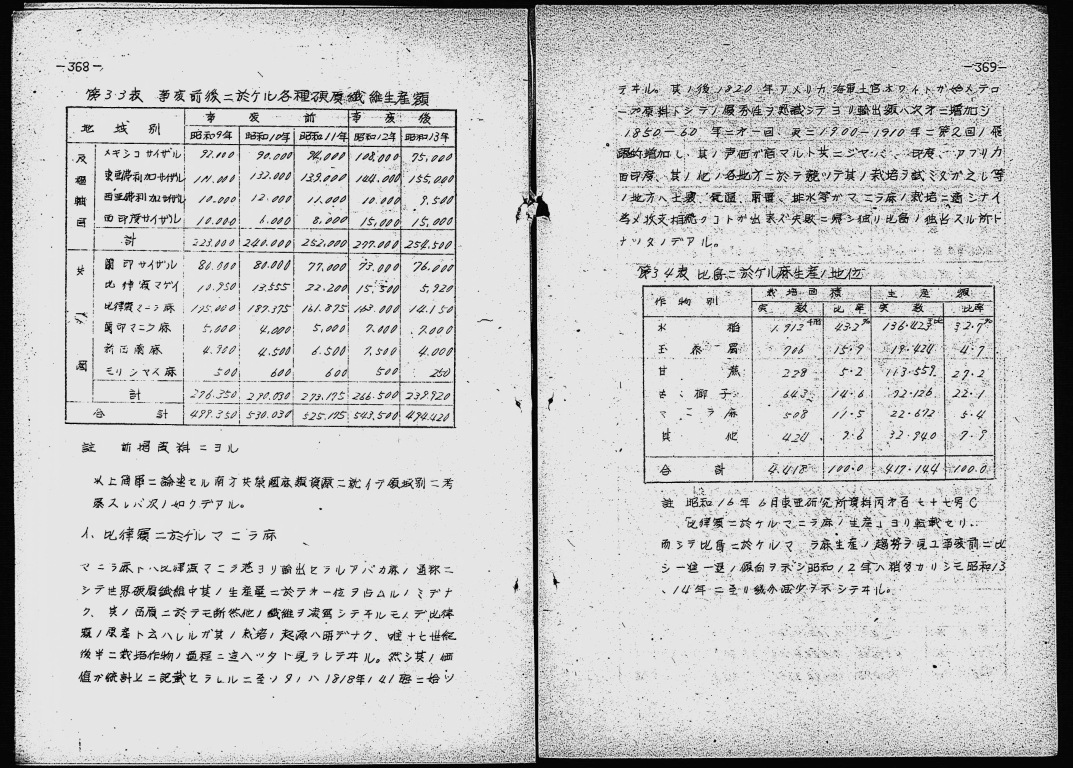 -368-
第33表 事変前後ニ於ケル各種硬質繊維生産額
地域別 事変前 事変後
昭和9年 昭和10年 昭和11年 昭和12年 昭和13年
メキシコサイザル 92.000 90.000 94,000 108,000 75,000
東亜弗利加サイザル 132.000 139.000 144.000 155,000
西亜弗利加サイザル 10.000 12.000 11.000 10.000 9.500
西印度サイザル 10.000 6.000 8.000 15,000 15,000
計 223.000 240.000 252.000 297.000 254.500
蘭印サイザル 80.000 77.000 73.000 76.000
比律賓マゲイ 10.950 13.555 22.200 15,500 5,920
比律賓マニラ麻 189.375 161.875 163.000
蘭印マニラ麻 5.000 4.000 5,000 7.000 7.000
新西蘭麻 4.900 4.500 6.500 7,500 4.000
モリシマス麻 500 600 600 500 250
計 276.350 290.030 273.175 266.500 239920
合計 499.350 530.030 525.175 543,500 494.420
註 前掲資料ニヨル
以上簡単ニ論述セル南方共栄圏麻類資源ニ就イテ領域別ニ考
察スレバ次ノ如クデアル。
1、比律賓ニ於ケルマニラ麻
マニラ麻トハ比律賓マニラ港ヨリ輸出セラルアバカ麻ノ通称ニ
シテ世界硬質繊維中其ノ生産量ニ於テオ一位ヲ占ムルノミデナ
ク、其ノ品質ニ於テモ断然他ノ繊維ヲ凌駕シテヰルモノデ比律
賓ノ原産ト云ハレルガ其ノ栽培ノ起源ハ明デナク、唯十七世紀
後半ニ栽培作物ノ過程ニ這入ツタト見ラレテヰル。然シ其ノ価
値が統計上ニ記載セラレルニ至ツタノハ1818年ノ41瓲ニ始ツ
-369-
テヰル。其ノ後1820年アメリカ海軍士官ホワイトが始メテロ
ープ原料トシテノ優秀性ヲ認識シテヨリ輸出額ハ次オニ増加シ
1850-60年ニオ一回、更ニ1900-1910年ニ第2回ノ飛
躍的増加シ、其ノ声価が高マルト共ニジヤバ、印度、アフリカ
西印度、其ノ他ノ各地方ニ於テ競ツテ其ノ栽培ヲ試ミタが之レ等
ノ地方ハ土壌、気温、雨量、排水等がマニラ麻ノ栽培ニ適シナイ
為メ収支相償フコトが出来ズ失敗ニ帰シ独リ比島ノ独占スル所ト
ナツタノデアル。
第34表 比島ニ於ケル麻生産ノ地位
作物別 栽培面積 生産額
実数 比率 実数 比率
水稲 1.912 43.2% 136.423 32.7%
玉蜀黍 706 15.9 19.424 4.7
甘蔗 228 5.2 113.559 27.2
古々椰子 643 14.6 92.126 22.1
マニラ麻 508 11.5 22.672 5.4
其他 424 9.6 32.940 7.9
合計 4.418 100.0 417.144 100.0
註 昭和16年6月東亜研究所資料丙オ百七十七号C
「比律賓ニ於ケルマニラ麻ノ生産」ヨリ転載セリ。
而シテ比島ニ於ケルマニラ麻生産ノ趨勢ヲ見ユ事変前ニ比
シ一進一退ノ傾向ヲ示シ昭和12年ハ稍多カリシモ昭和13
、14年ニ至リ幾分減少ヲ示シテヰル。